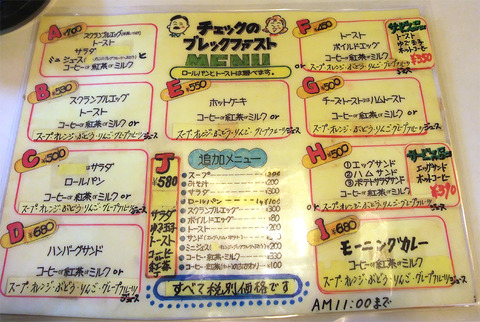 チェックの
ブレックファスト
MENU
ロールパンとトーストは選べます。
A ¥700
スクランブルエッグ
トースト
サラダ
ミニジュース
コーヒーor紅茶orミルク
B ¥580
スクランブルエッグ
トースト
コーヒーor紅茶orミルク or
スープ・オレンジ・ぶどう・りんご・グレープフルーツジュース
C ¥500
サラダ
ロールパン
コーヒーor紅茶orミルク or
スープ・オレンジ・ぶどう・りんご・グレープフルーツジュース
D ¥680
ハンバーグサンド
コーヒーor紅茶orミルク or
スープ・オレンジ・ぶどう・りんご・グレープフルーツジュース
E
ホットケーキ
コーヒーor紅茶orミルク or
スープ・オレンジ・ぶどう・りんご・グレープフルーツジュース
F ¥450
トースト
ボイルドエッグ
コーヒーor紅茶orミルク or
スープ・オレンジ・ぶどう・りんご・グレープフルーツジュース
トースト
ゆで玉子
ホットコーヒー
¥350
G ¥500
チーズトーストorハムトースト
コーヒーor紅茶orミルク or
スープ・オレンジ・ぶどう・りんご・グレープフルーツジュース
H ¥500
①エッグサンド
②ハムサンド
③ポテトサラダサンド
コーヒーor紅茶orミルク or
スープ・オレンジ・ぶどう・りんご・グレープフルーツジュース
エッグサンド
ホットコーヒー
¥390
I ¥680
モーニングカレー
コーヒーor紅茶orミルク or
スープ・オレンジ・ぶどう・りんご・グレープフルーツジュース
J
¥580
サラダ
ゆで玉子
トースト
コーヒー
紅茶
追加メニュー
スープ
みそ汁 200
サラダ 300
ロールパン
スクランブルエッグ 300
ボイルドエッグ 80
トースト 200
サンド
ミニジュース 200
コーヒーor紅茶 330
コーヒーor紅茶 100
すべて税別価格です
AM11:00まで